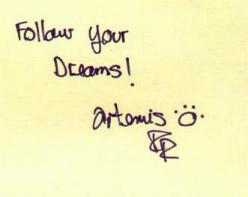 Follow your
Dreams!
artemis